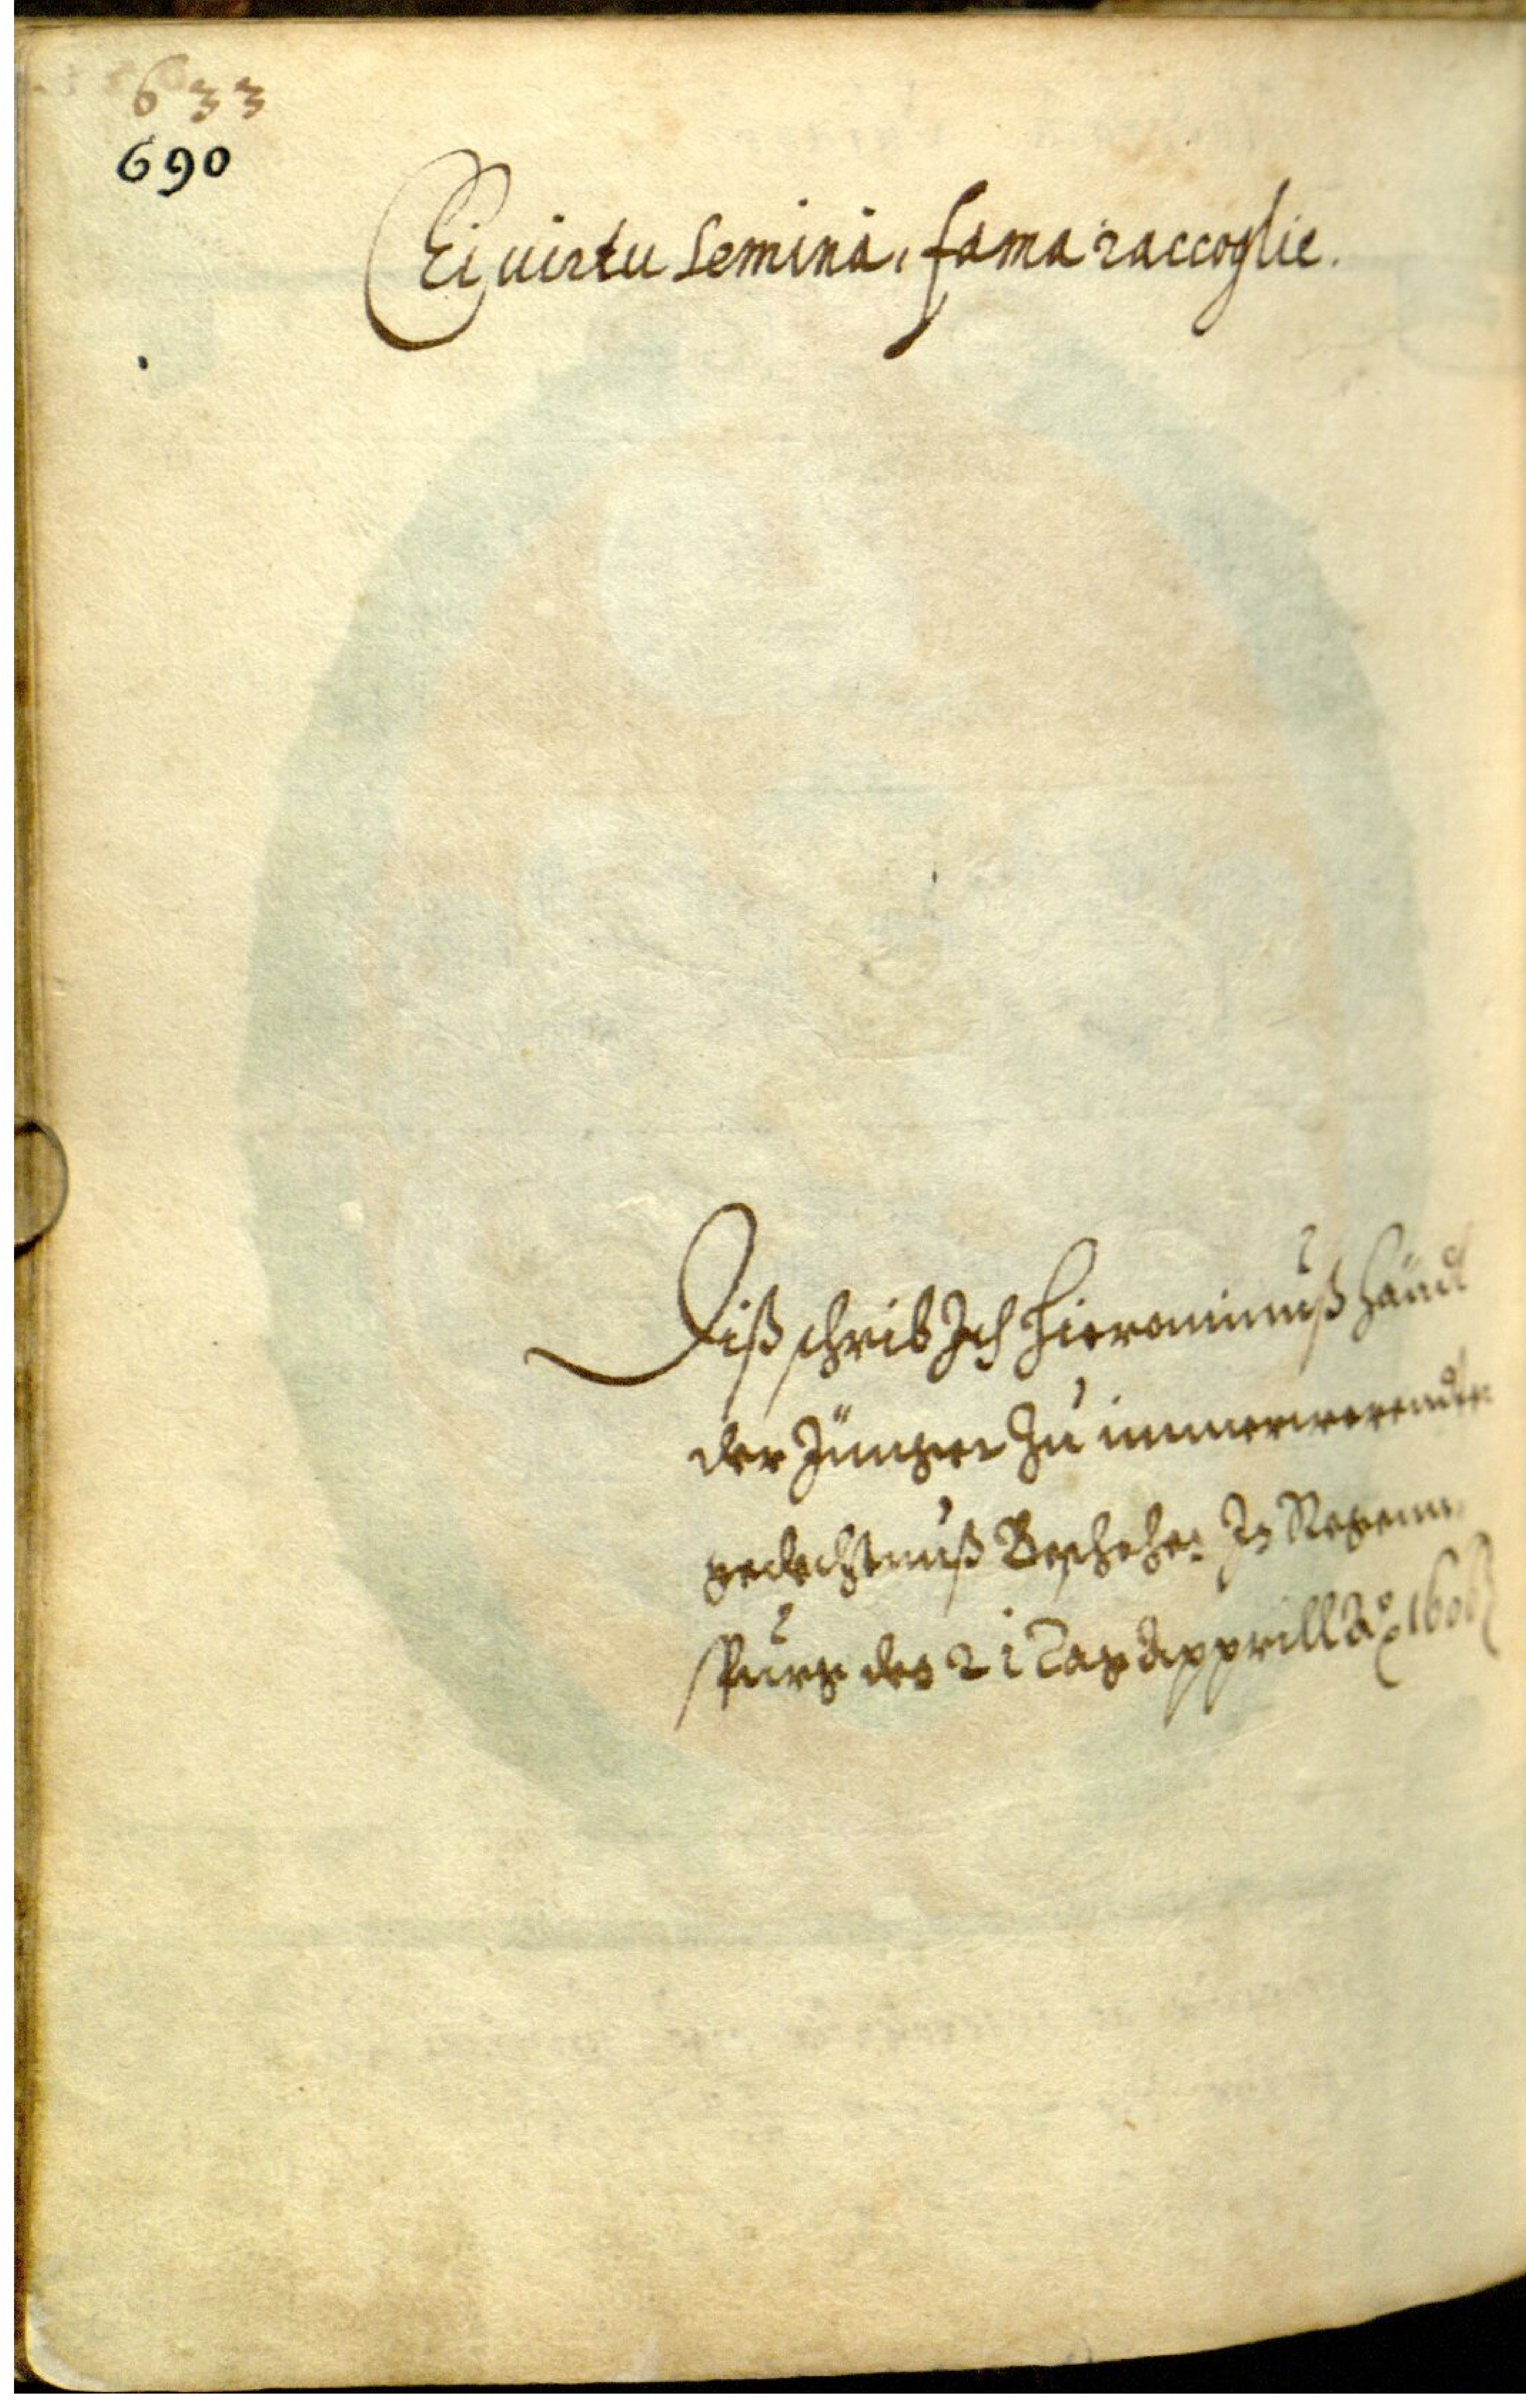 633
690
Ei uirtu semina, fama raccoglie.
Diß schrib Ich Hieronimuß Händl
der Jünger Zu immerwerendter
gedechtnuß Beschehen In Regenn
spurg den 21 Tag Apprill Aº 1606